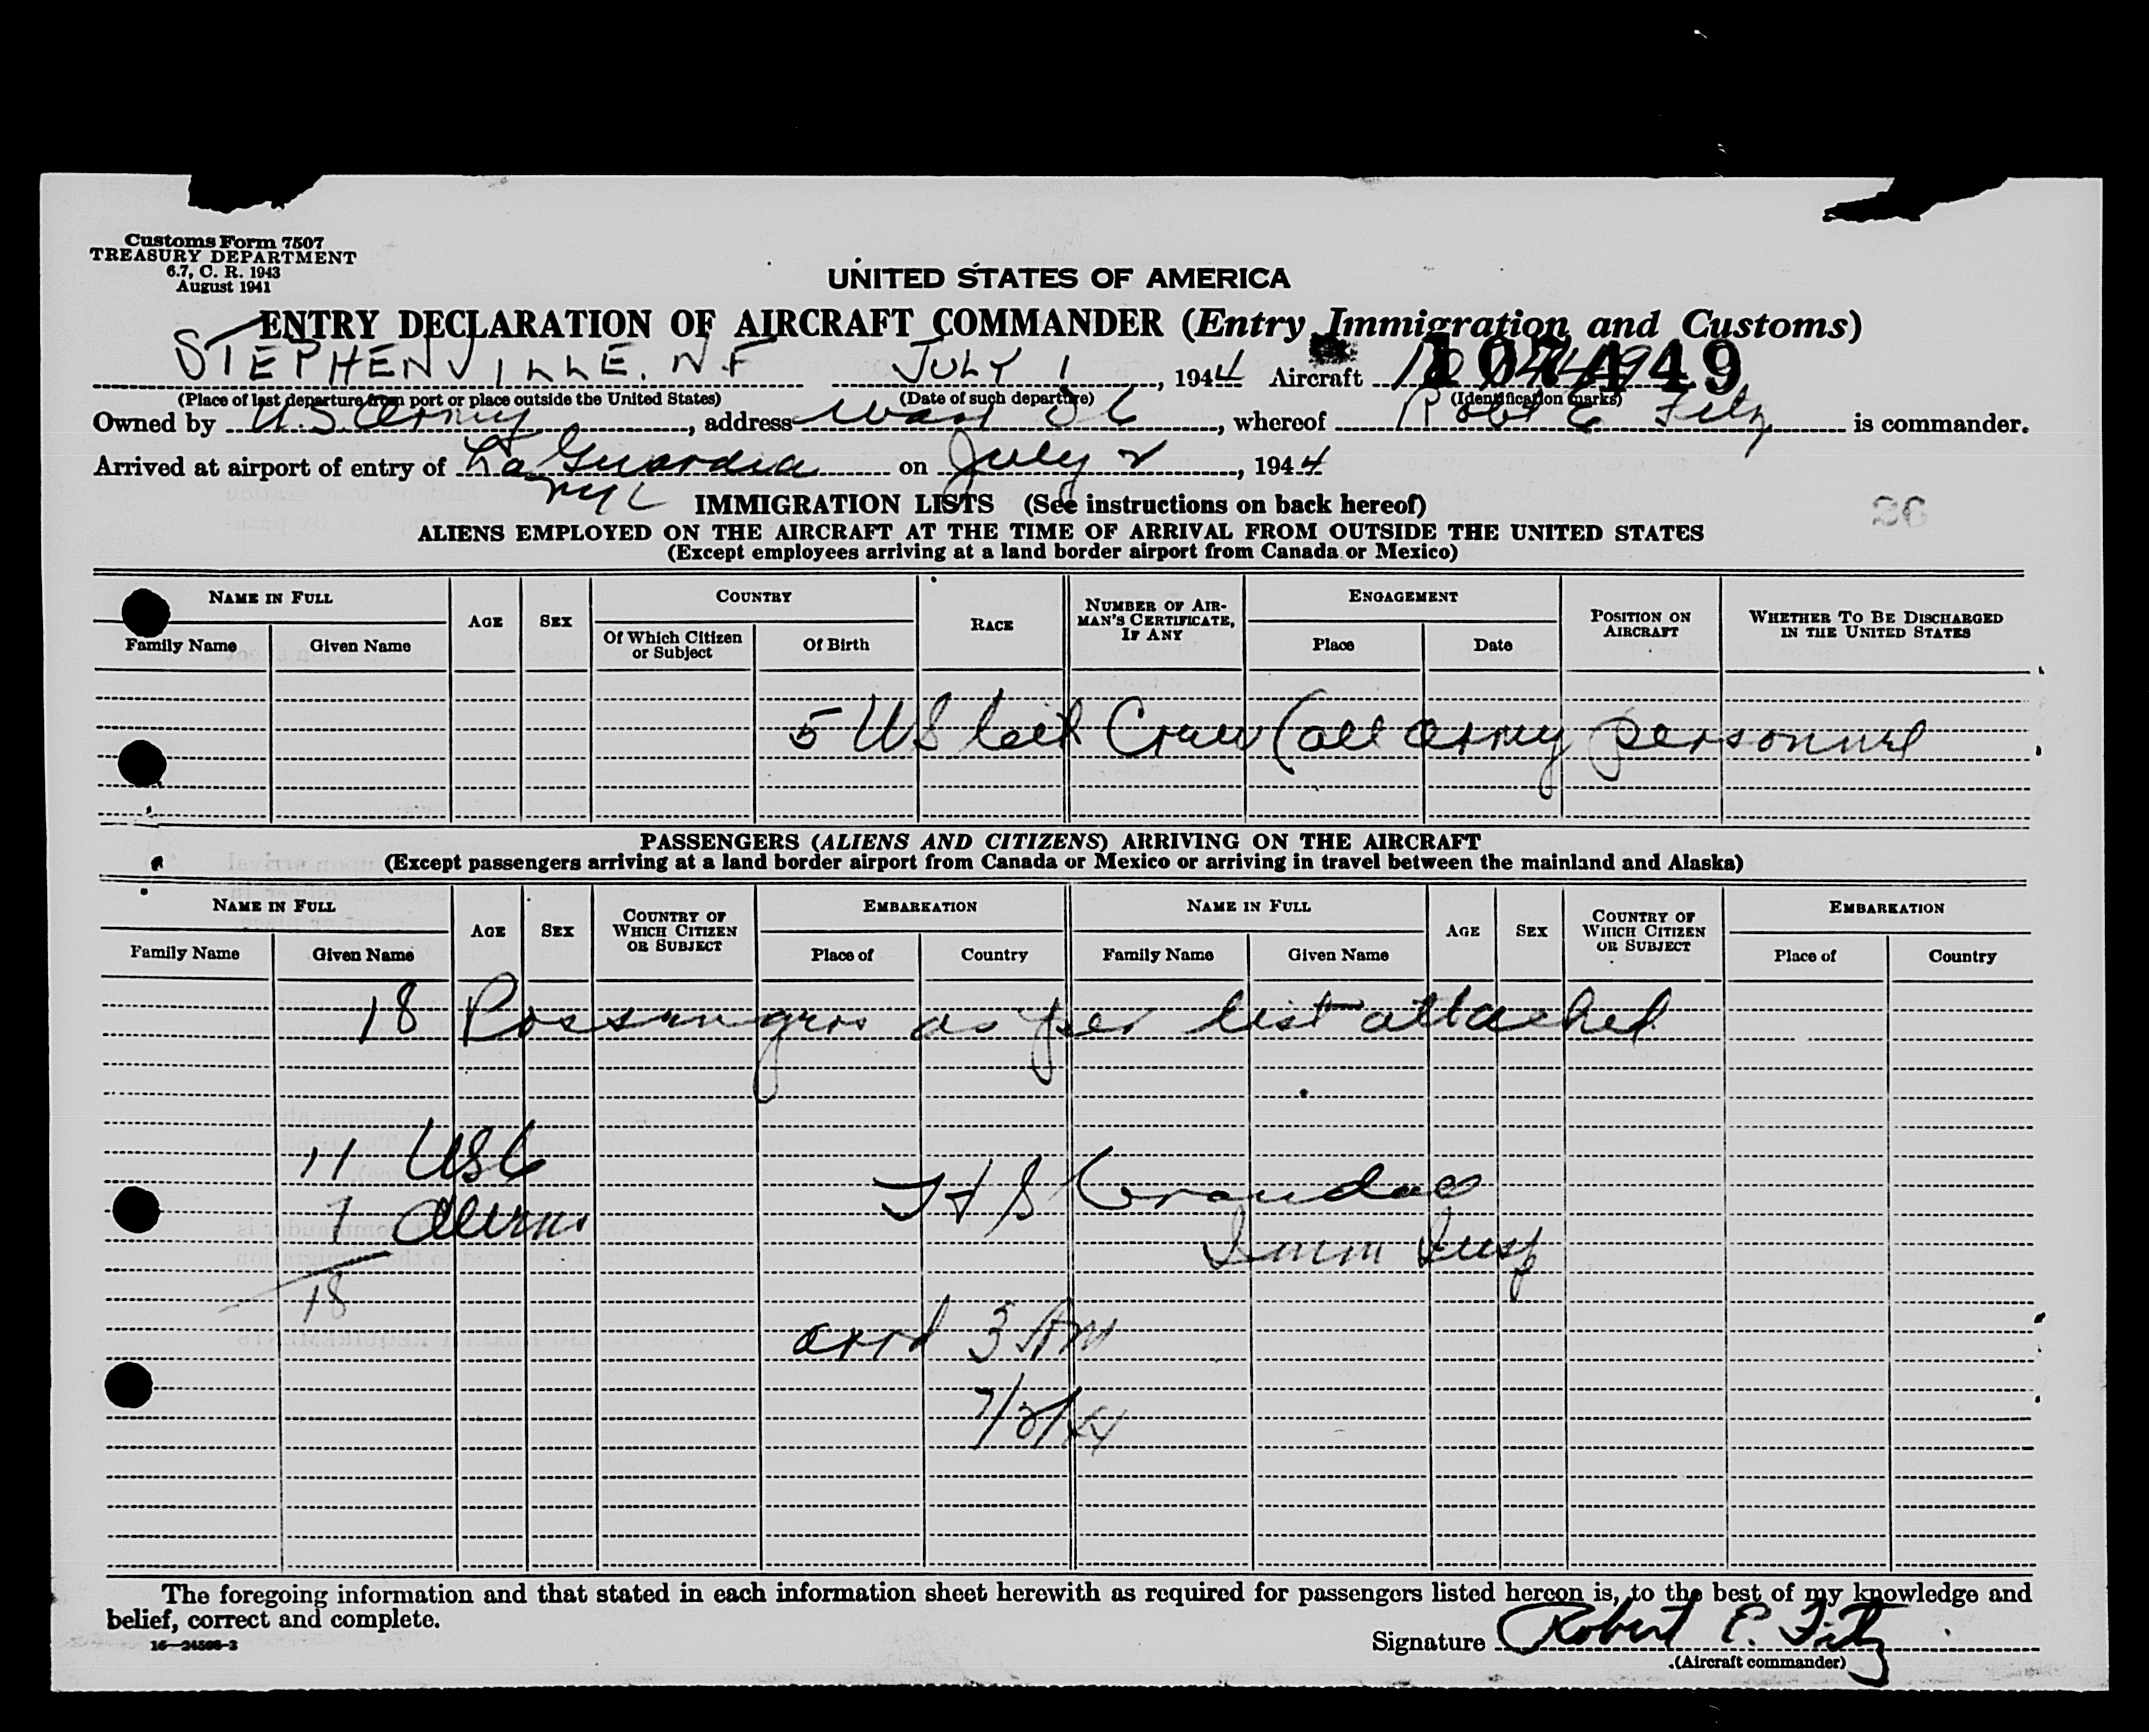 Customs Form 7507
TREASURY DEPARTMENT
6.7, C. R. 1943
August 1941
UNITED STATES OF AMERICA
ENTRY DECLARATION OF AIRCRAFT COMMANDER (Entry Immigration and Customs)
STEPHENVILLE. N.F JULY 1, 1944 Aircraft 107449
(Place of last departure from port or place outside the United States) (Date of such departure) (Identification marks)
Owned by U.S. Army, address Wash DC, whereof Robt E Fitz is commander.
Arrived at airport of entry of La Guardia on July 2, 1944
NYC
IMMIGRATION LISTS (See instructions on back hereof)
26
ALIENS EMPLOYED ON THE AIRCRAFT AT THE TIME OF ARRIVAL FROM OUTSIDE THE UNITED STATES
(Except employees arriving at a land border airport from Canada or Mexico)
NAME IN FULL AGE SEX COUNTRY RACE NUMBER OF AIRMAN'S CERTIFICATE, IF ANY ENGAGEMENT POSITION ON AIRCRAFT WHETHER TO BE DISCHARGED IN THE UNITED STATES
Family Name Given Name Of Which Citizen or Subject Of Birth Place Date
5 US Crew (all army personnel
PASSENGERS (ALIENS AND CITIZENS) ARRIVING ON THE AIRCRAFT
(Except passengers arriving at a land border airport from Canada or Mexico or arriving in travel between the mainland and Alaska)
NAME IN FULL AGE SEX COUNTRY OF WHICH CITIZEN OR SUBJECT EMBARKATION NAME IN FULL AGE SEX COUNTRY OF WHICH CITIZEN OR SUBJECT EMBARKATION
Family Name Given Name Place of Country Family Name Given Name Place of Country
18 Passengers as per list attached
11 USC
7 Aliens
18
Imm Insp
arrd 3 AM
7/2/44
The foregoing information and that stated in each information sheet herewith as required for passengers listed hereon is, to the best of my knowledge and
belief, correct and complete.
16—24566-3
Signature Robert E. Fitz
(Aircraft commander)